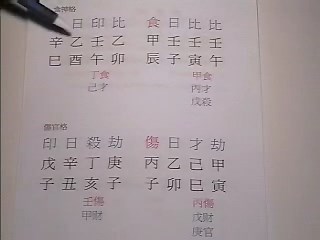 食神格
日印比 食日比比
辛乙壬乙 甲壬壬壬
巳酉午卯 辰子寅午
丁食 甲食
己才 丙才
戊殺
傷官格
印日殺劫 傷日才劫
戊辛丁庚 丙乙己甲
子丑亥子 子卯巳寅
壬傷 丙傷
甲財 戊財
庚官